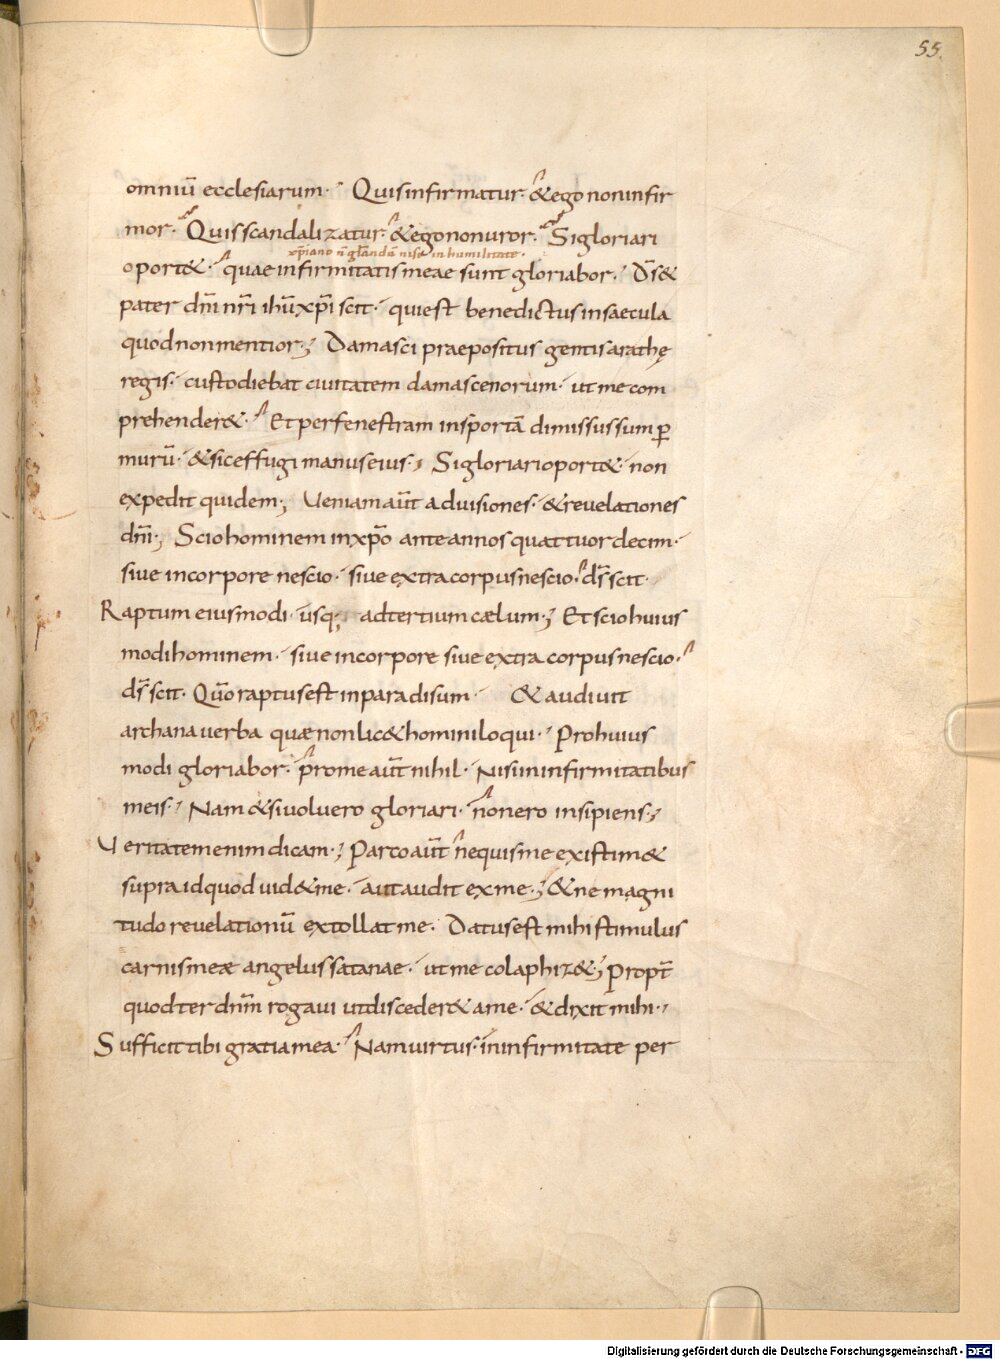 55.
omniū ecclesiarum· Quisinfirmatur· &ego noninfir
mor· Quisscandalizatur· &egononuror· Sigloriari
xp̄iano n̄ glandū nisi in humilitate·
oport&· quae infirmitatis meae sunt gloriabor· Ds̄&
pater dn̄i nr̄i ihū xp̄i scit· quiest benedictus insaecula
quodnonmentior; Damasci praepositus gentis arathę
regis· custodiebat ciuitatem damascenorum· ut me com
prehender&· Et perfenestram insportā dimissussum p̄
murū· &siceffugi manuseius; Sigloriarioport& non
expedit quidem; Ueniamaūt aduisiones· &reuelationes
dn̄i; Sciohominem inxp̄o anteannos quattuordecim·
siue incorpore nescio· siue extracorpusnescio· ds̄ scit·
Raptum eiusmodi· usq; adtertium cælum; Et scio huius
modihominem· siue incorpore siue extra corpusnescio·
ds̄ scit· Qūoraptusest inparadisum· & audiuit
archana uerba quænonlic&hominiloqui· Prohuius
modi gloriabor· p̄rome aūt nihil· Nisiininfirmitatibus
meis· Nam &siuoluero gloriari· n̄onero insipiens;
Ueritatemenim dicam; Parcoaūt n̄equisme existim&
supra idquod uid&me· aut audit exme; &ne magni
tudo reuelationū extollat me· Datusest mihi stimulus
carnismeæ angelussatanae· ut me colaphiz&; Propt̄
quodter dn̄m rogaui utdisceder& ame· &dixit mihi·
Sufficit tibi gratia mea· Namuirtus· ininfirmitate per
Digitalisierung gefördert durch die Deutsche Forschungsgemeinschaft - DFG